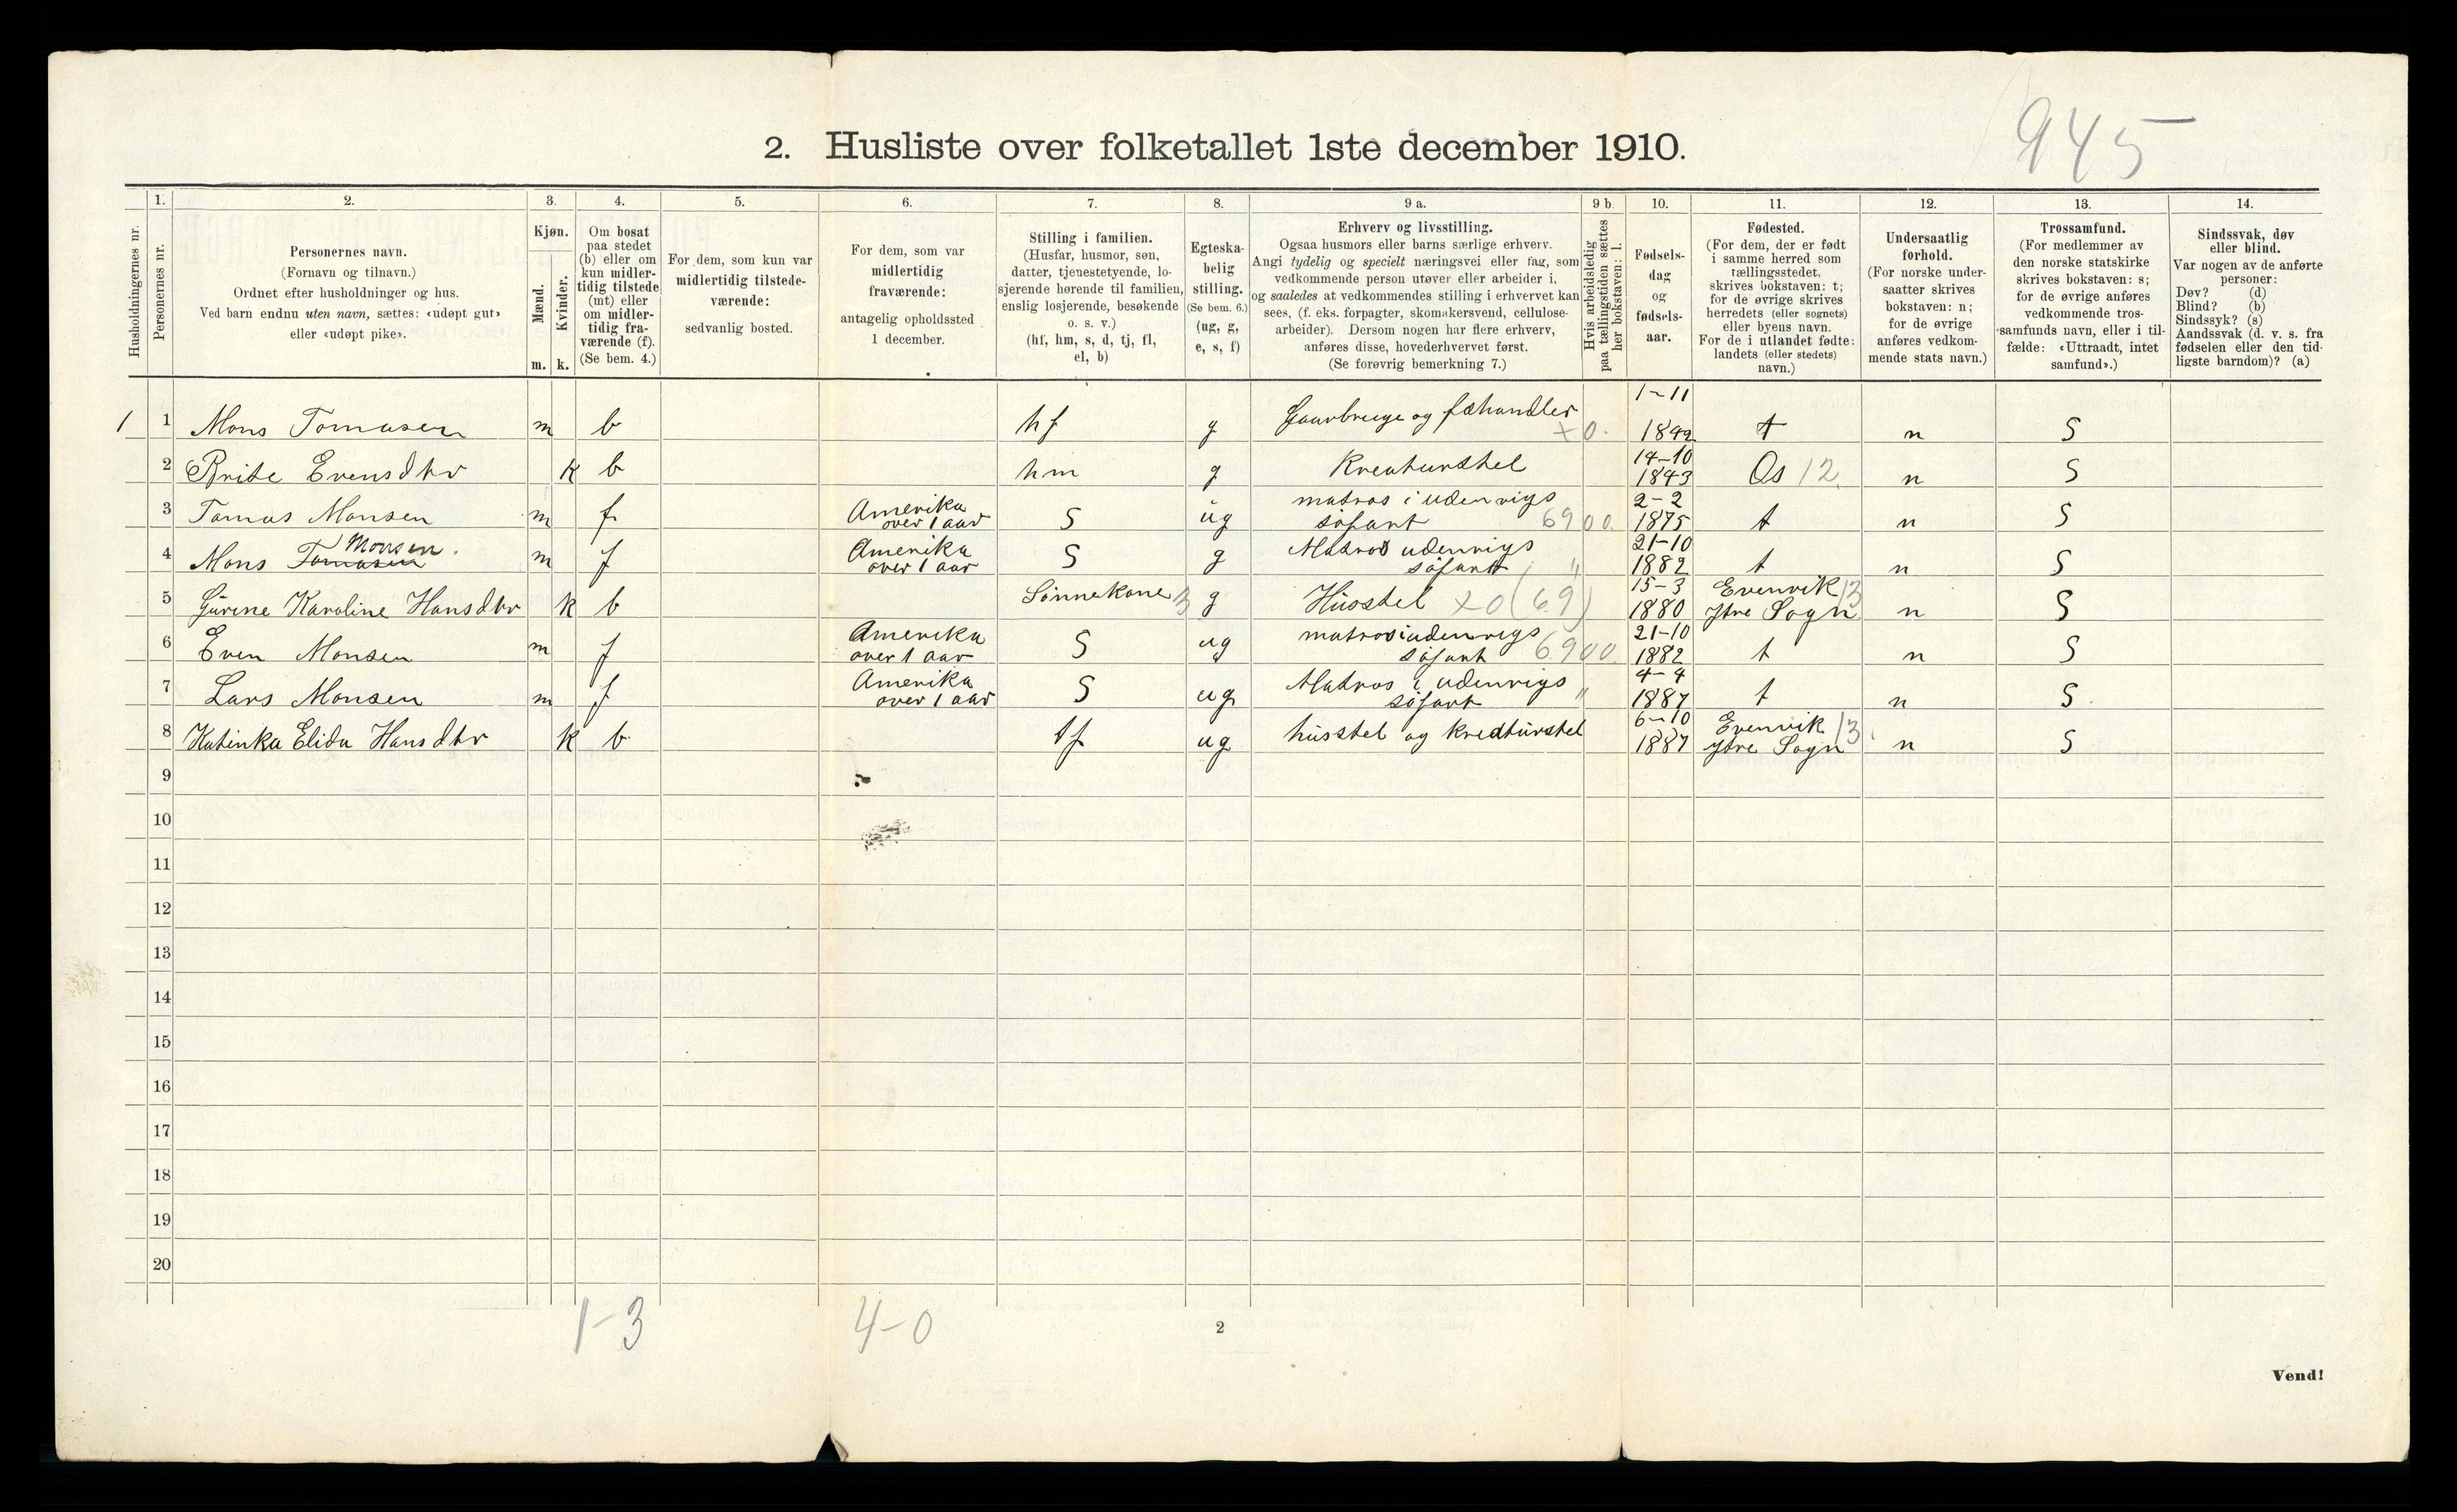 945
2. Husliste over folketallet 1ste december 1910.
Husholdningernes nr.
1.
Personernes nr.
2.
Personernes navn.
(Fornavn og tilnavn.)
Ordnet efter husholdninger og hus.
Ved barn endnu uten navn, sættes: «udøpt gut»
eller «udøpt pike».
3.
Kjøn.
Mænd.
Kvinder.
m. k.
4.
Om bosat
paa stedet
(b) eller om
kun midler-
tidig tilstede
(mt) eller
om midler-
tidig fra-
værende (f).
(Se bem. 4.)
5.
For dem, som kun var
midlertidig tilstede-
værende:
sedvanlig bosted.
6.
For dem, som var
midlertidig
fraværende:
antagelig opholdssted
1 december.
7.
Stilling i familien.
(Husfar, husmor, søn,
datter, tjenestetyende, lo-
sjerende hørende til familien,
enslig losjerende, besøkende
o. s. v.)
(hf, hm, s, d, tj, fl,
el, b)
8.
Egteska-
belig
stilling.
(Se bem. 6.)
(ug, g,
e, s, f)
9 a.
Erhverv og livsstilling.
Ogsaa husmors eller barns særlige erhverv.
Angi tydelig og specielt næringsvei eller fag, som
vedkommende person utøver eller arbeider i,
og saaledes at vedkommendes stilling i erhvervet kan
sees, (f. eks. forpagter, skomakersvend, cellulose-
arbeider). Dersom nogen har flere erhverv,
anføres disse, hovederhvervet først.
(Se forøvrig bemerkning 7.)
9 b.
Hvis arbeidsledig
paa tællingstiden sættes
her bokstaven: l.
10.
Fødsels-
dag
og
fødsels-
aar.
11.
Fødested.
(For dem, der er født
i samme herred som
tællingsstedet,
skrives bokstaven: t;
for de øvrige skrives
herredets (eller sognets)
eller byens navn.
For de i utlandet fødte:
landets (eller stedets)
navn.)
12.
Undersaatlig
forhold.
(For norske under-
saatter skrives
bokstaven: n;
for de øvrige
anføres vedkom-
mende stats navn.)
13.
Trossamfund.
(For medlemmer av
den norske statskirke
skrives bokstaven: s;
for de øvrige anføres
vedkommende tros-
samfunds navn, eller i til-
fælde: «Uttraadt, intet
samfund».)
14.
Sindssvak, døv
eller blind.
Var nogen av de anførte
personer:
Døv? (d)
Blind? (b)
Sindssyk? (s)
Aandssvak (d. v. s. fra
fødselen eller den tid-
ligste barndom)? (a)
1 1 Mons Tomasen m b hf g Gaarbruge og fæhandler x0. 1-11 1842 t n S
2 Brite Evensdtr k b hm g Kreaturstel 14-10 1843 Os 12 n S
3 Tomas Monsen m f Amerika over 1 aar S ug matros i udenrigs søfart 6900 2-2 1875 t n S
4 Mons Tomasen Monsen. m f Amerika over 1 aar S g Matros udenrigs søfart " 21-10 1882 t n S
5 Gurine Karoline Hansdtr k b Sønnekone g Husstel x0 (69) 15-3 1880 Evenvik Ytre Sogn 13 n S
6 Even Monsen m f Amerika over 1 aar S ug matros i udenrigs søfart 6900 21-10 1882 t n S
7 Lars Monsen m f Amerika over 1 aar S ug Matros i udenrigs søfart " 4-4 1887 t n S
8 Katinka Elida Hansdtr k b tj ug husstel og kreaturstel 6-10 1887 Evenvik Ytre Sogn 13 n S
9
10
11
12
13
14
15
16
17
18
19
20
1-3 4-0
2
Vend!